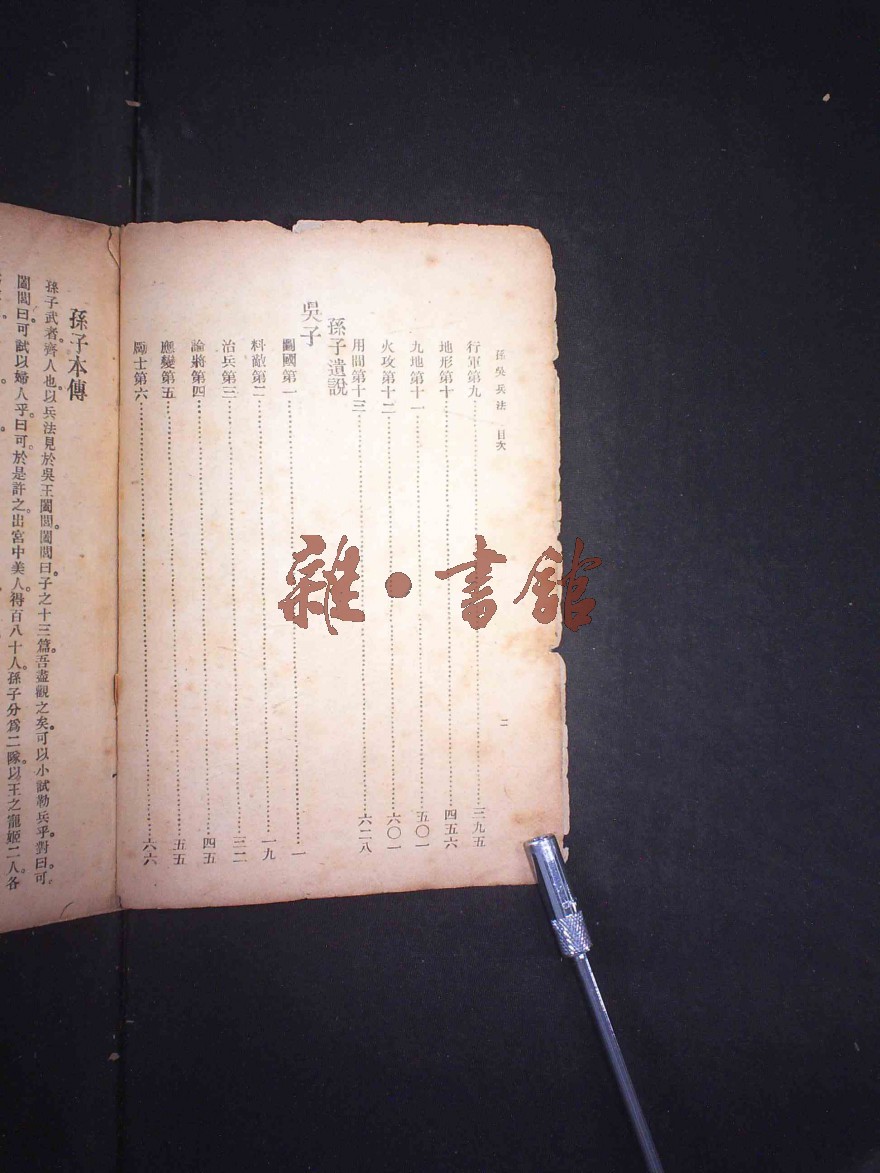 孫吳兵法 目次
二
行軍第九……三九五
地形第十……四五六
九地第十一……五〇一
火攻第十二……六〇一
用間第十三……六二八
孫子遺說
吳子
圖國第一……一
料敵第二……一九
治兵第三……三二
論將第四……四五
應變第五……五五
勵士第六……六六
孫子本傳
孫子武者。齊人也以兵法見於吳王闔閭。闔閭曰。子之十三篇。吾盡觀之矣。可以小試勒兵乎。對曰。可。
闔閭曰。可試以婦人乎。曰可。於是許之。出宮中美人。得百八十人。孫子分爲二隊。以王之寵姬二人。各
雜·書館